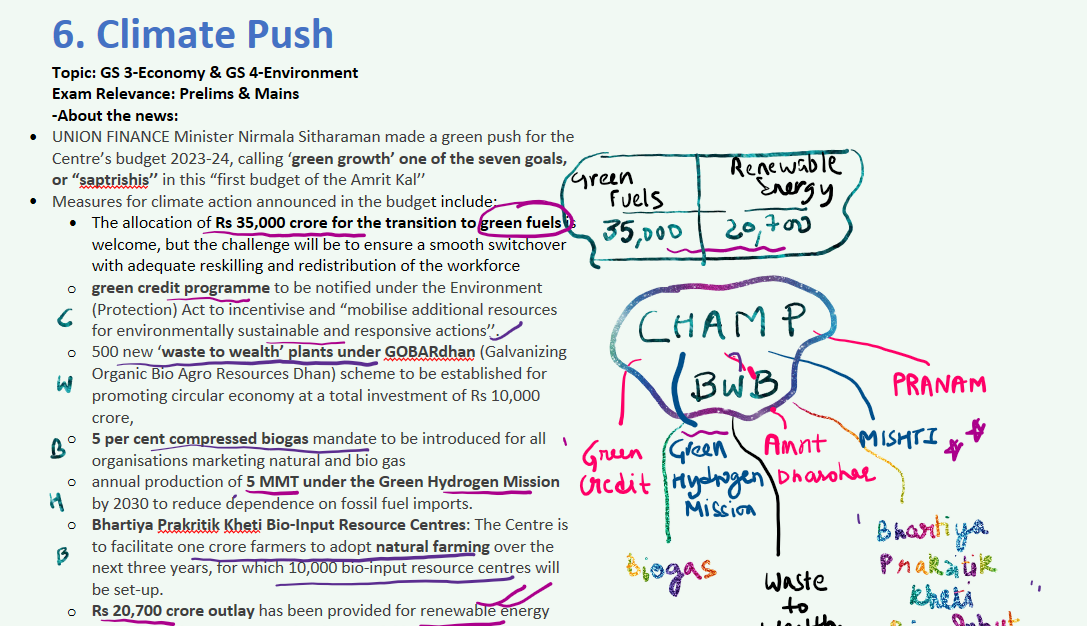 6. Climate Push
Topic: GS 3-Economy & GS 4-Environment
Exam Relevance: Prelims & Mains
-About the news:
• UNION FINANCE Minister Nirmala Sitharaman made a green push for the
Centre's budget 2023-24, calling 'green growth' one of the seven goals,
or "saptrishis" in this "first budget of the Amrit Kal"
• Measures for climate action announced in the budget include:
• The allocation of Rs 35,000 crore for the transition to green fuels is
welcome, but the challenge will be to ensure a smooth switchover
with adequate reskilling and redistribution of the workforce
o green credit programme to be notified under the Environment
(Protection) Act to incentivise and "mobilise additional resources
for environmentally sustainable and responsive actions".
o 500 new 'waste to wealth' plants under GOBARdhan (Galvanizing
Organic Bio Agro Resources Dhan) scheme to be established for
promoting circular economy at a total investment of Rs 10,000
crore,
o 5 per cent compressed biogas mandate to be introduced for all
organisations marketing natural and bio gas
o annual production of 5 MMT under the Green Hydrogen Mission
by 2030 to reduce dependence on fossil fuel imports.
o Bhartiya Prakritik Kheti Bio-Input Resource Centres: The Centre is
to facilitate one crore farmers to adopt natural farming over the
next three years, for which 10,000 bio-input resource centres will
be set-up.
o Rs 20,700 crore outlay has been provided for renewable energy
C
W
B
H
B
Green Fuels
35,000
Renewable Energy
20,700
CHAMP
BWB
PRANAM
MISHTI
Green
Credit
Green
Hydrogen
Mission
Amrit
Dharohar
Biogas
Waste
to
Wealth
Bhartiya
Prakritik
Kheti